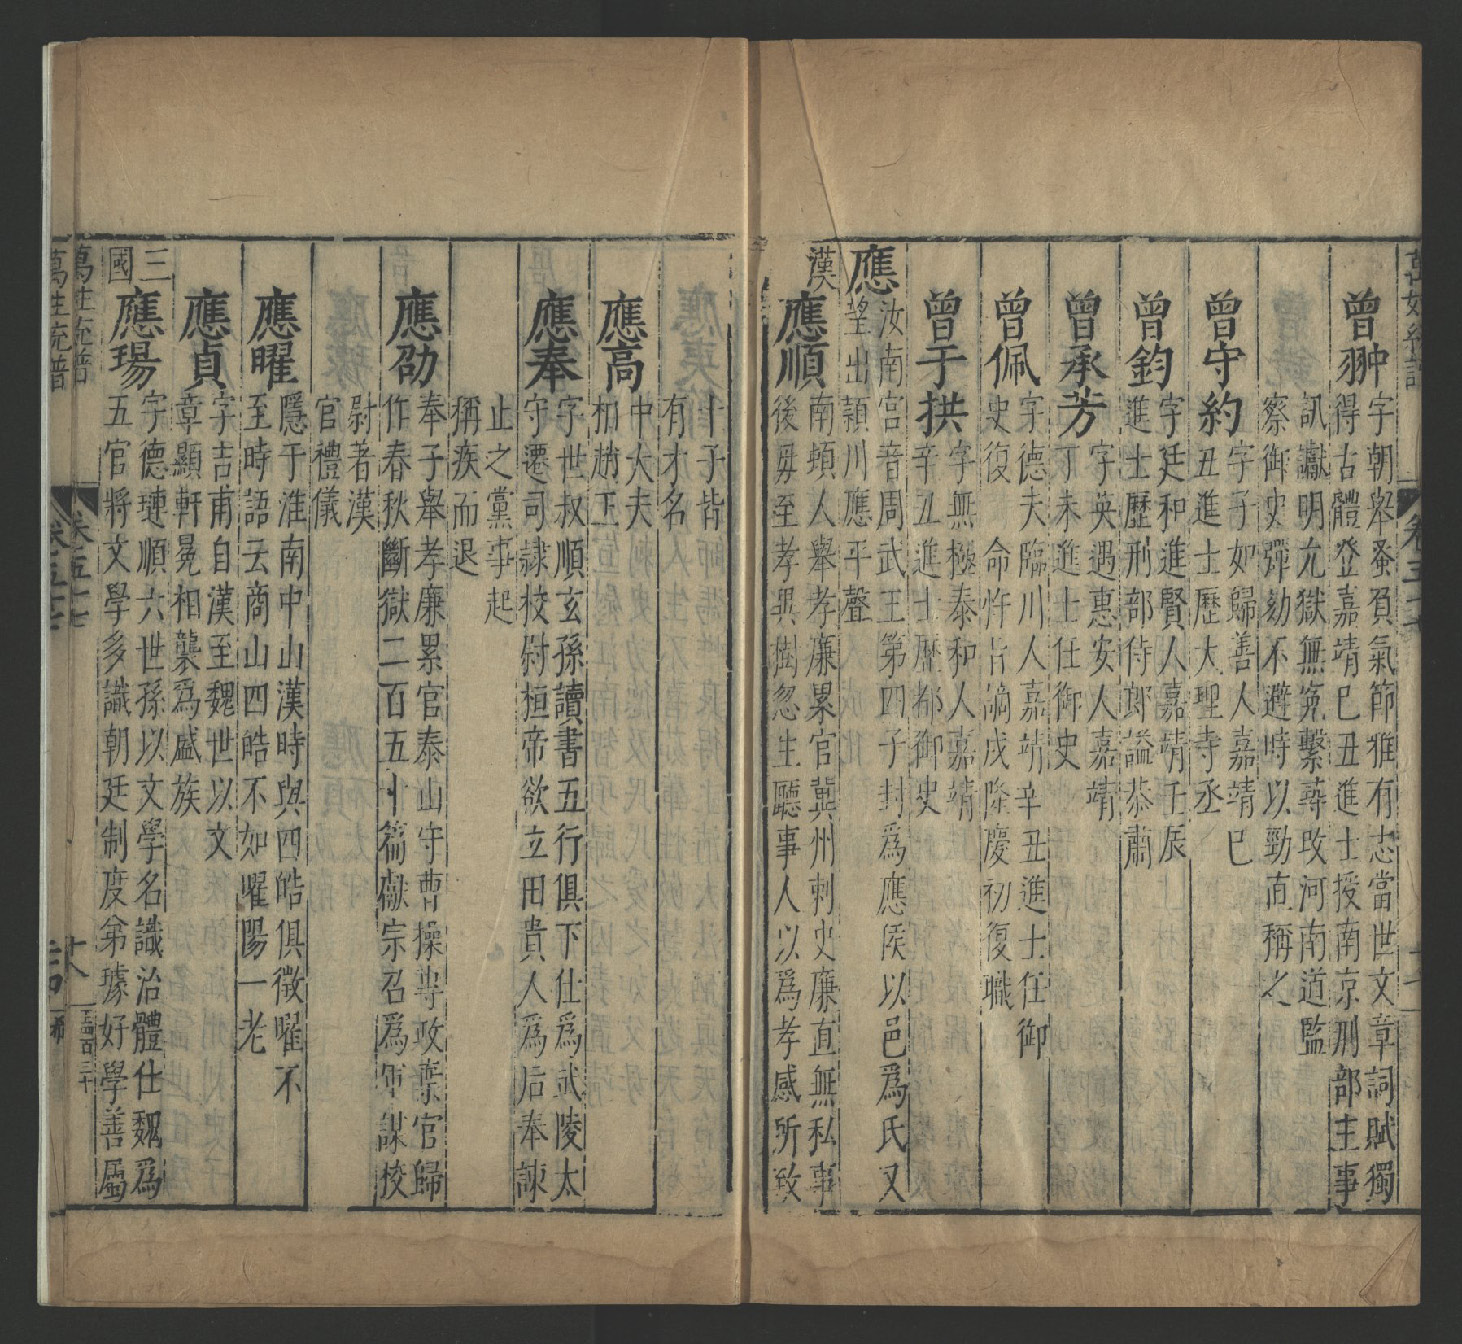 曾翀字朝舉蚤負氣節雅有志當世文章詞賦獨
得古體登嘉靖己丑進士授南京刑部主事
訊讞明允獄無冤繫尋改河南道監
察御史彈劾不避時以勁直稱之
曾守約字子如歸善人嘉靖己
丑進士歷大理寺丞
曾鈞字廷和進賢人嘉靖壬辰
進士歷刑部侍郎謚恭肅
曾承芳字英遇惠安人嘉靖
丁未進士仕御史
曾佩字德夫臨川人嘉靖辛丑進士任御
史復命忤旨謫戍隆慶初復職
曾于拱字無極泰和人嘉靖
辛丑進士歷都御史
應汝南宮音周武王第四子封為應侯以邑爲氏又
望出潁川應平聲
漢
應順南頓人舉孝廉累官冀州刺史廉直無私事
後母至孝異樹忽生聽事人以爲孝感所致
十子皆
有才名
應高中大夫
應奉字世叔順玄孫讀書五行俱下仕爲武陵太
守遷司隷校尉桓帝欲立田貴人爲后奉諫
止之黨事起
稱疾而退
應劭奉子舉孝廉累官泰山守曹操專政棄官歸
作春秋斷獄二百五十篇獻宗召爲軍謀校
尉著漢
官禮儀
應曜隱于淮南中山漢時與四皓俱徵曜不
至時語云商山四皓不如曜陽一老
應貞字吉甫自漢至魏世以文
章顯軒冕相襲爲盛族
三國
應瑒字德璉順六世孫以文學名識治體仕魏爲
五官將文學多識朝廷制度弟璩好學善屬
萬姓統譜
卷五十七
十八